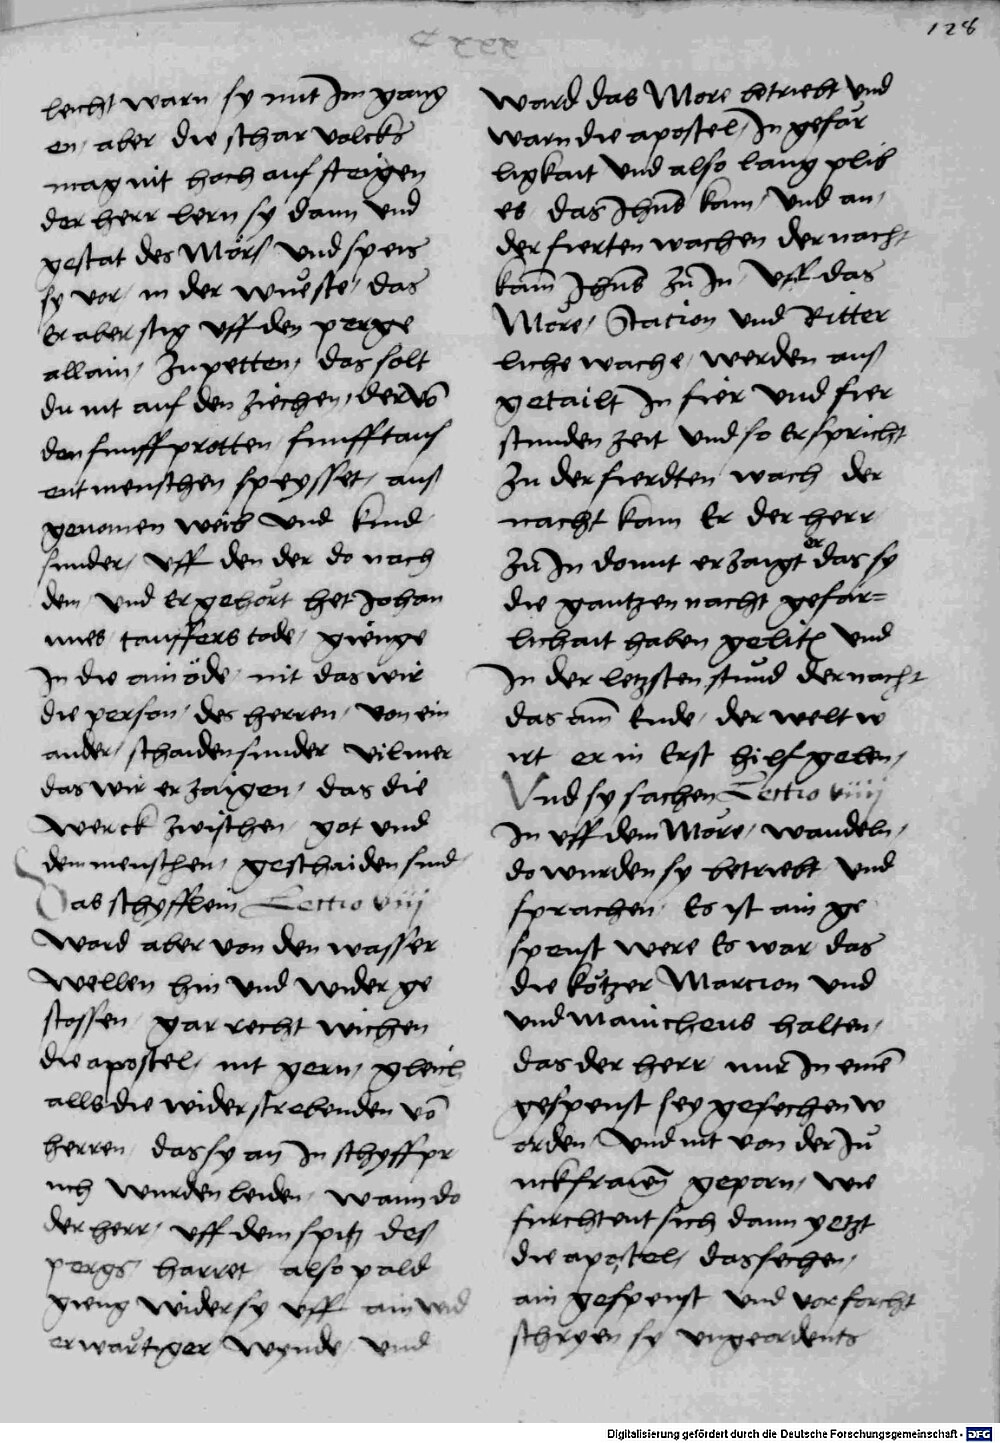 128
leicht warn sy mit Im gang
en, aber die schar volcks
mag nit hoch auf steigen
der herr lern sy dann und
gestat des Mörs und speis
sy vor, in der wueste, das
Er aber stig uff den perge
allain, zu petten, das solt
du nit auf den ziechen, der vō
den funff protten funfftaus
ent menschen speysset, auß
genomen weib und kind
sunder, uff den der do nach
dem, und er gehört het Johan
nnes tauffers tode, gienge
In die ainöde, nit das wir
die person, des herren, von ein
ander, schaiden sunder vil mer
das wir er zaigen, das die
werck zwischen, got und
dem menschen, geschaiden sind
Das schyfflein Lectio viij
ward aber von den wasser
wellen hin und wider ge
stossen, gar recht wichen
die apostel, nit gern, gleich
alls die widerstrebenden vō
herren, das sy an In schyffpr
uch wurden leiden, wann do
der herr, uff dem spitz des
pergs harret, also pald
gieng wider sy uff ain wid
erwärtiger wynde, und
ward das More betriebt und
warn die apostel, In gefär
ligkait und also lang plib
es, das Ihus kam, und an,
der fierten wachen der nacht
kam Ihus zu In, uff das
More, Station und Ritter
liche wache, werden auß
getailt In fier und fier
stunden zeit und so Er spricht
zu der fierdten wach der
nacht kam Er der herr
zu In domit er zaigt er das sy
die gantzen nacht gefär=
lichait haben gelitē und
In der letzsten stund der nacht
das am Ende, der welt w
irt er in Erst hilf geben,
Vnd sy sachen Lectio viiij
In uff dem More, wandeln,
do wurden sy betriebt und
sprachen, Es ist ain ge
spenst were Es war das
die kötzer Marcion und
und manicheus halten,
das der herr nur In einē
gespenst sey gesechen w
orden, und nit von der Ju
nckfrawen geporn, wie
furchtent sich dann yetzt
die apostel, das sechen,
ain gespenst und vor forcht
schryen sy ungeordents
Digitalisierung gefördert durch die Deutsche Forschungsgemeinschaft - DFG